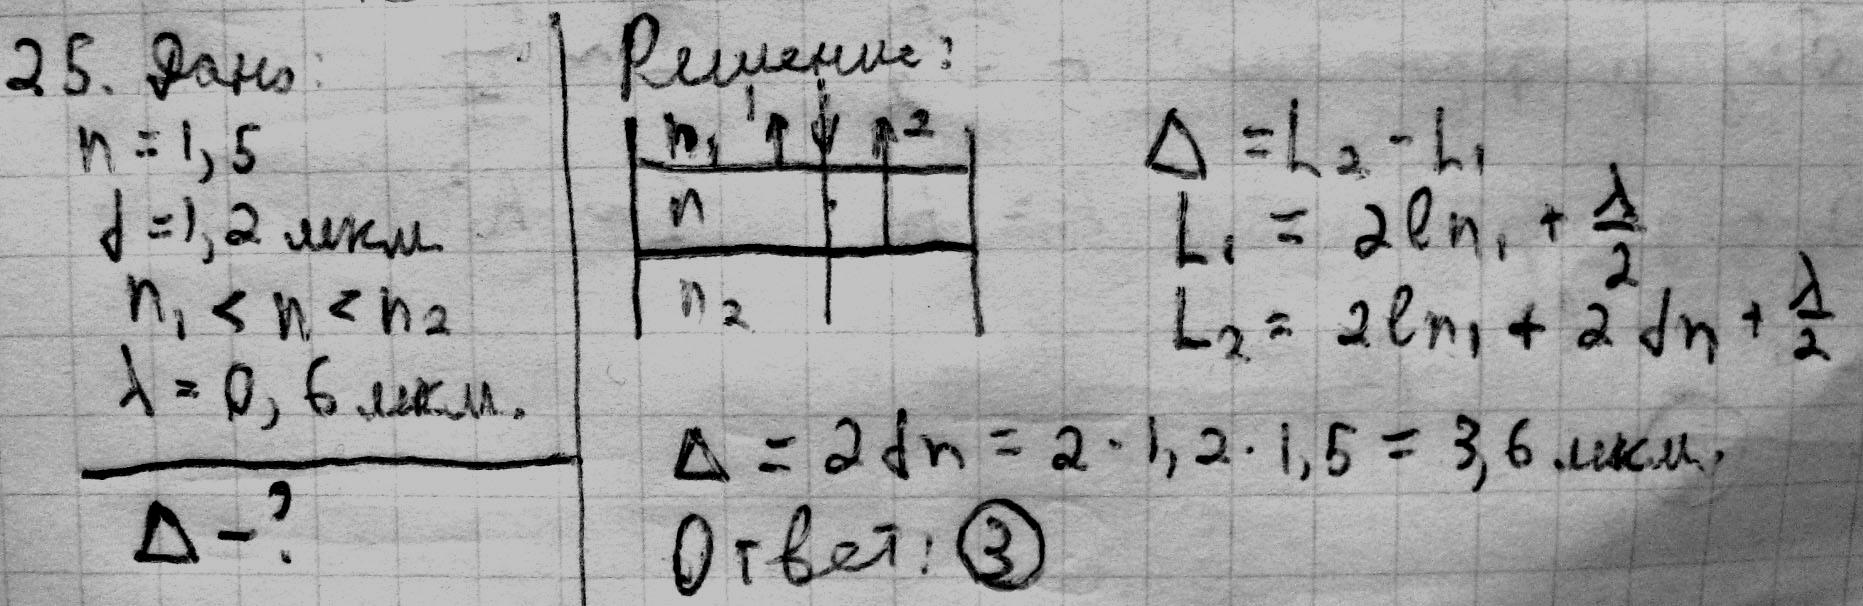 25. Дано:
n = 1,5
d = 1,2 мкм
n₁ < n < n₂
λ = 0,6 мкм.
Δ - ?
Решение:
n₁ 1 2
n
n₂
Δ = L₂ - L₁
L₁ = 2ln₁ + λ/2
L₂ = 2ln₁ + 2dn + λ/2
Δ = 2dn = 2 · 1,2 · 1,5 = 3,6 мкм.
Ответ: 3